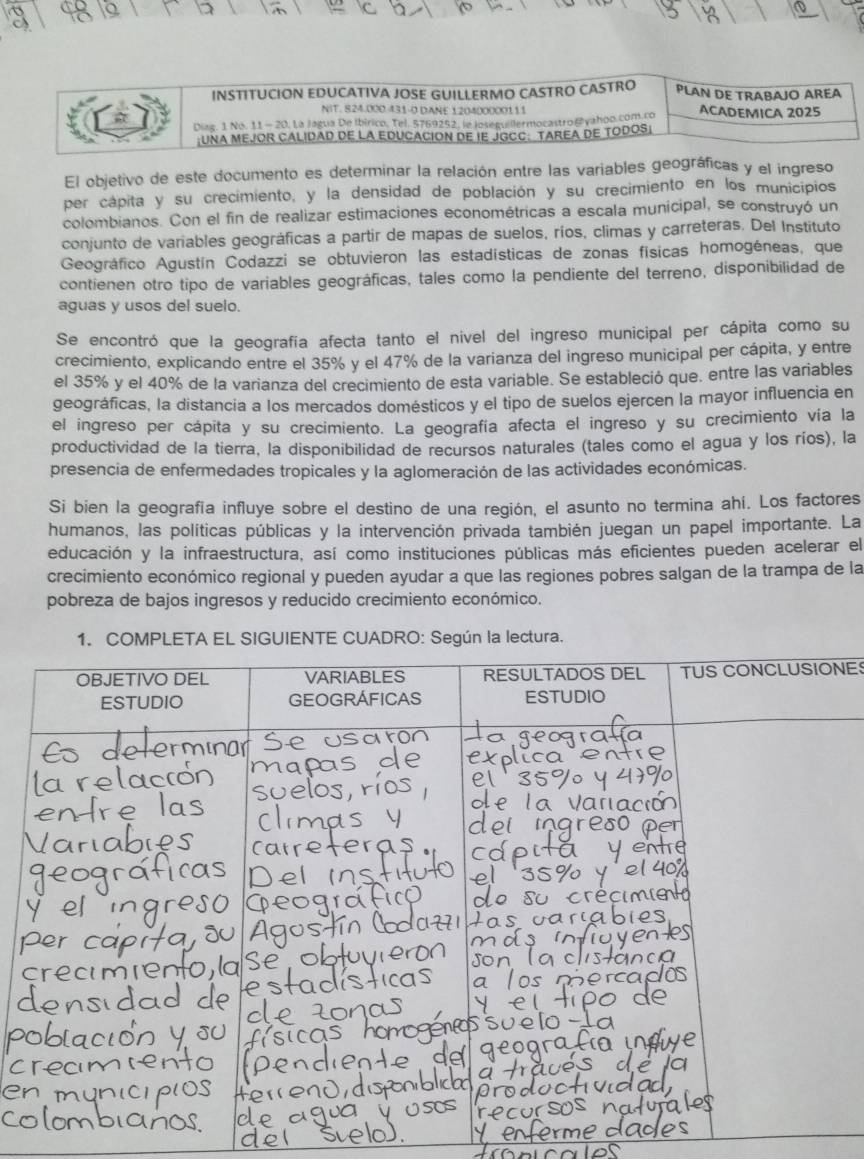 INSTITUCION EDUCATIVA JOSE GUILLERMO CASTRO CASTRO
NIT. 824.000.431-0 DANE 120400000111
Diag. 1 No. 11 – 20, La Jagua De Ibirico, Tel. 5769252, ie.joseguillermocastro@yahoo.com.co
¡UNA MEJOR CALIDAD DE LA EDUCACION DE IE JGCC: TAREA DE TODOS¡
PLAN DE TRABAJO AREA
ACADEMICA 2025
El objetivo de este documento es determinar la relación entre las variables geográficas y el ingreso
per cápita y su crecimiento, y la densidad de población y su crecimiento en los municipios
colombianos. Con el fin de realizar estimaciones econométricas a escala municipal, se construyó un
conjunto de variables geográficas a partir de mapas de suelos, ríos, climas y carreteras. Del Instituto
Geográfico Agustín Codazzi se obtuvieron las estadísticas de zonas físicas homogéneas, que
contienen otro tipo de variables geográficas, tales como la pendiente del terreno, disponibilidad de
aguas y usos del suelo.
Se encontró que la geografía afecta tanto el nivel del ingreso municipal per cápita como su
crecimiento, explicando entre el 35% y el 47% de la varianza del ingreso municipal per cápita, y entre
el 35% y el 40% de la varianza del crecimiento de esta variable. Se estableció que. entre las variables
geográficas, la distancia a los mercados domésticos y el tipo de suelos ejercen la mayor influencia en
el ingreso per cápita y su crecimiento. La geografía afecta el ingreso y su crecimiento vía la
productividad de la tierra, la disponibilidad de recursos naturales (tales como el agua y los ríos), la
presencia de enfermedades tropicales y la aglomeración de las actividades económicas.
Si bien la geografía influye sobre el destino de una región, el asunto no termina ahí. Los factores
humanos, las políticas públicas y la intervención privada también juegan un papel importante. La
educación y la infraestructura, así como instituciones públicas más eficientes pueden acelerar el
crecimiento económico regional y pueden ayudar a que las regiones pobres salgan de la trampa de la
pobreza de bajos ingresos y reducido crecimiento económico.
1. COMPLETA EL SIGUIENTE CUADRO: Según la lectura.
OBJETIVO DEL
ESTUDIO
VARIABLES
GEOGRÁFICAS
RESULTADOS DEL
ESTUDIO
TUS CONCLUSIONES
Es determinar
la relación
entre las
Variables
geográficas
y el ingreso
per cápita, su
crecimiento, la
densidad de
población y su
crecimiento
en municipios
colombianos.
Se usaron
mapas de
suelos, ríos,
climas y
carreteras.
Del instituto
Geográfico
Agostín Codazzi
se obtuvieron
estadísticas
de zonas
físicas homogéneas
(pendiente del
terreno, disponiblidad
de agua y usos
del suelo).
La geografía
explica entre
el 35% y 47%
de la variación
del ingreso per
cápita y entre
el 35% y el 40%
do su crecimiento
Las variables
más influyentes
son la distancia
a los mercados
y el tipo de
suelo-La
geografía influye
a través de la
productividad,
recursos naturales
y enfermedades
tropicales